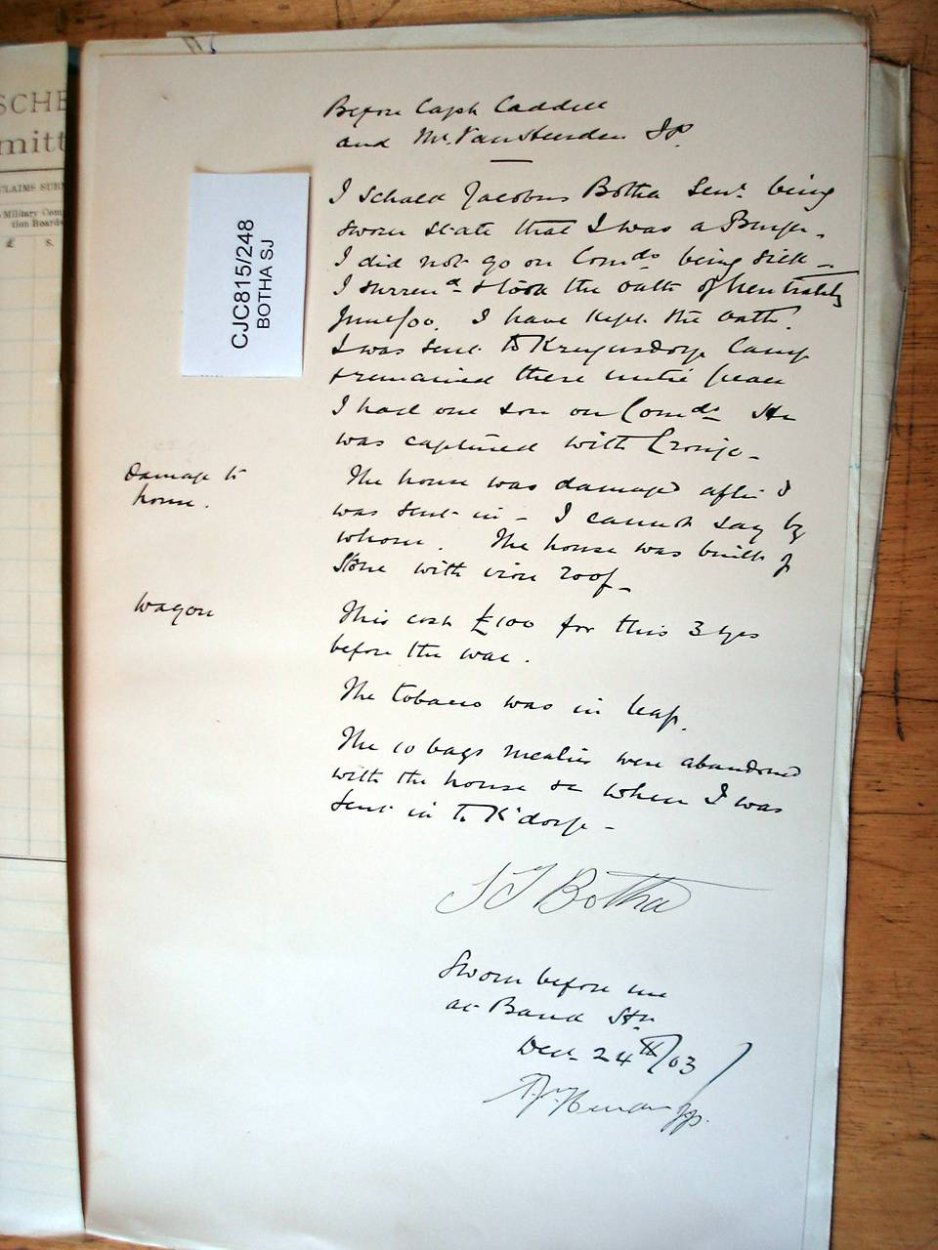 SCHE
mitt
CLAIMS SUB
Military Com
tion Boards
£ S.
CJC815/248
BOTHA SJ
Before Capt Caddell
and Mr. Van Heerden J.P.
I Schalk Jacobus Botha Senr. being
sworn state that I was a Burgher.
I did not go on Comdo being sick -
I surrend & took the oath of Neutrality
June/00. I have kept the oath.
I was sent to Krugersdorp Camp
& remained there until peace
I had one son on Comdo He
was captured with Cronje -
Damage to
house.
The house was damaged after I
was sent in - I cannot say by
whom. The house was built of
stone with iron roof -
Wagon
This cost £100 for this 3 yrs
before the war.
The tobacco was in leaf.
The 10 bags mealies were abandoned
with the house &c when I was
sent in to K'dorp -
S J Botha
Sworn before me
at Band Stn
Dec 24th/03
JP.